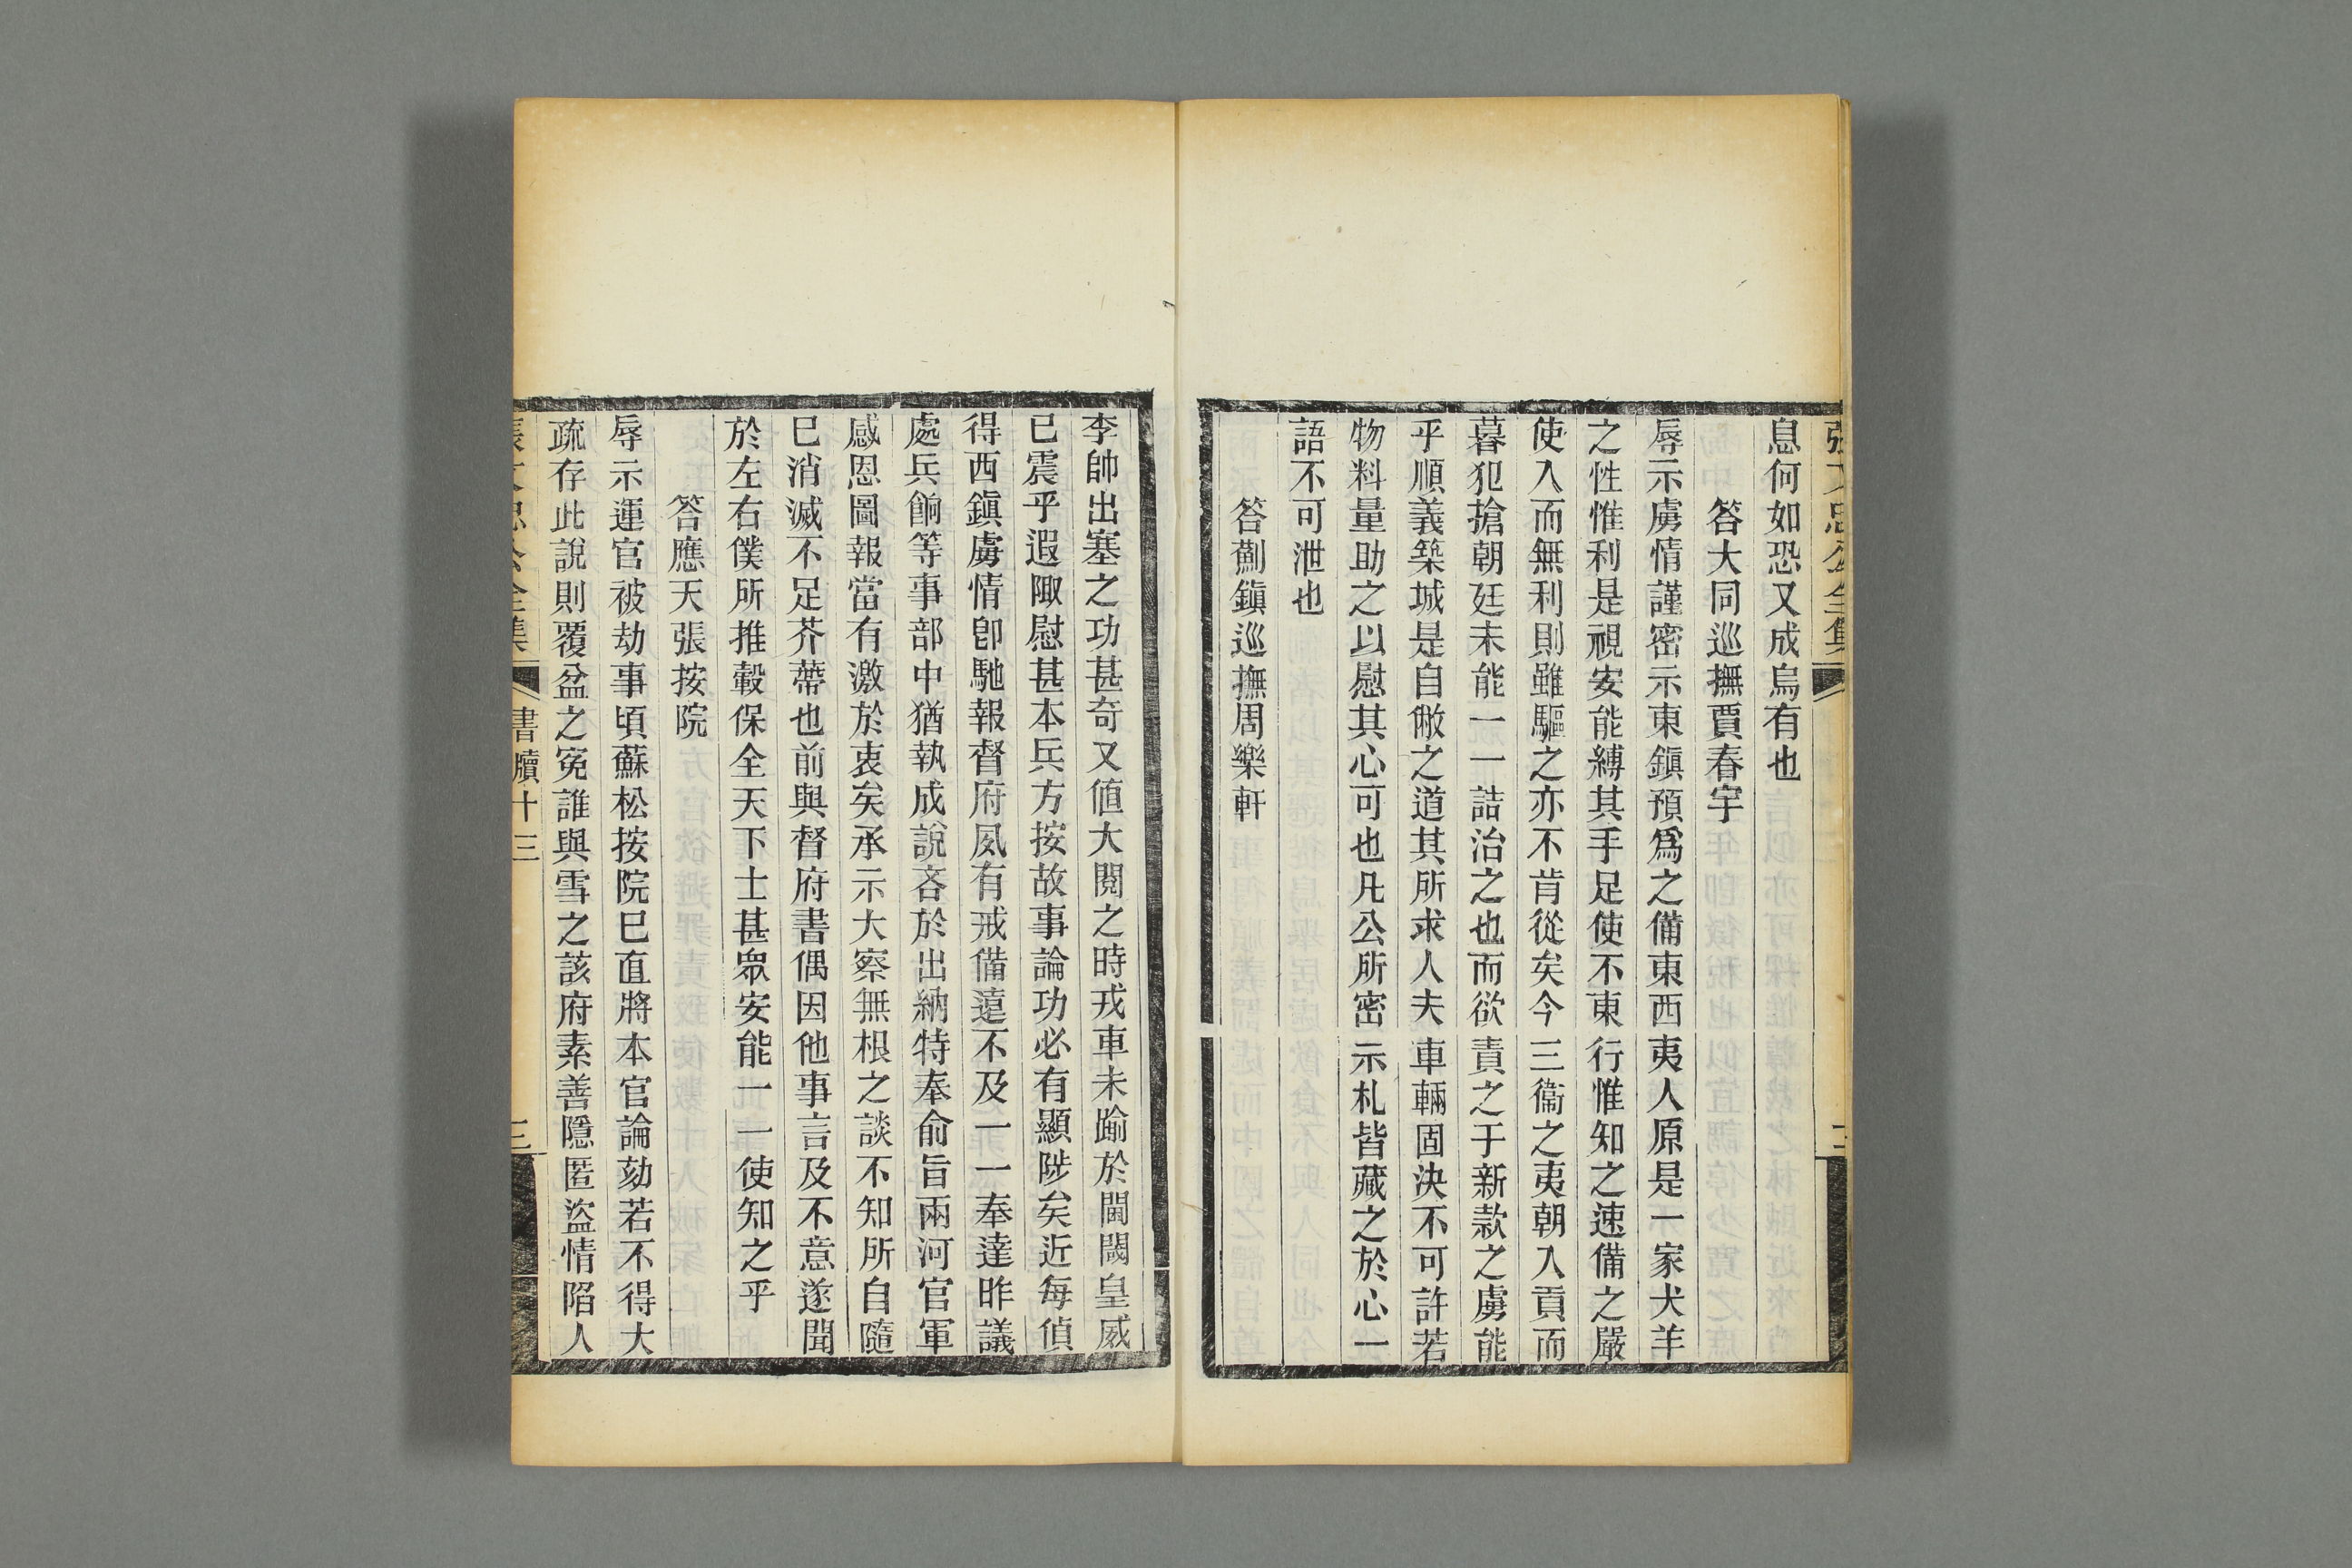 息何如恐又成烏有也
答大同巡撫賈春宇
辱示虜情謹密示東鎭預爲之備東西夷人原是一家犬羊
之性惟利是視安能縛其手足使不東行惟知之速備之嚴
使入而無利則雖驅之亦不肯從矣今三衞之夷朝入貢而
暮犯搶朝廷未能一一詰治之也而欲責之于新款之虜能
乎順義築城是自敝之道其所求人夫車輛固決不可許若
物料量助之以慰其心可也凡公所密示札皆藏之於心一
語不可泄也
答薊鎭巡撫周樂軒
李帥出塞之功甚奇又値大閱之時戎車未踰於閫閾皇威
已震乎遐陬慰甚本兵方按故事論功必有顯陟矣近每偵
得西鎭虜情卽馳報督府夙有戒備遠不及一一奉達昨議
處兵餉等事部中猶執成說吝於出納特奉俞旨兩河官軍
感恩圖報當有激於衷矣承示大察無根之談不知所自隨
巳消滅不足芥蔕也前與督府書偶因他事言及不意遂聞
於左右僕所推轂保全天下士甚眾安能一一使知之乎
答應天張按院
辱示運官被劫事頃蘇松按院巳直將本官論劾若不得大
疏存此說則覆盆之冤誰與雪之該府素善隱匿盜情陷人
張文忠公全集 書牘十三 三